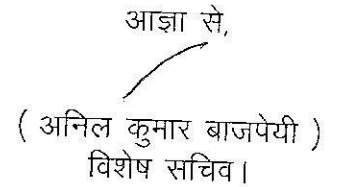 आज्ञा से,
( अनिल कुमार बाजपेयी )
विशेष सचिव।